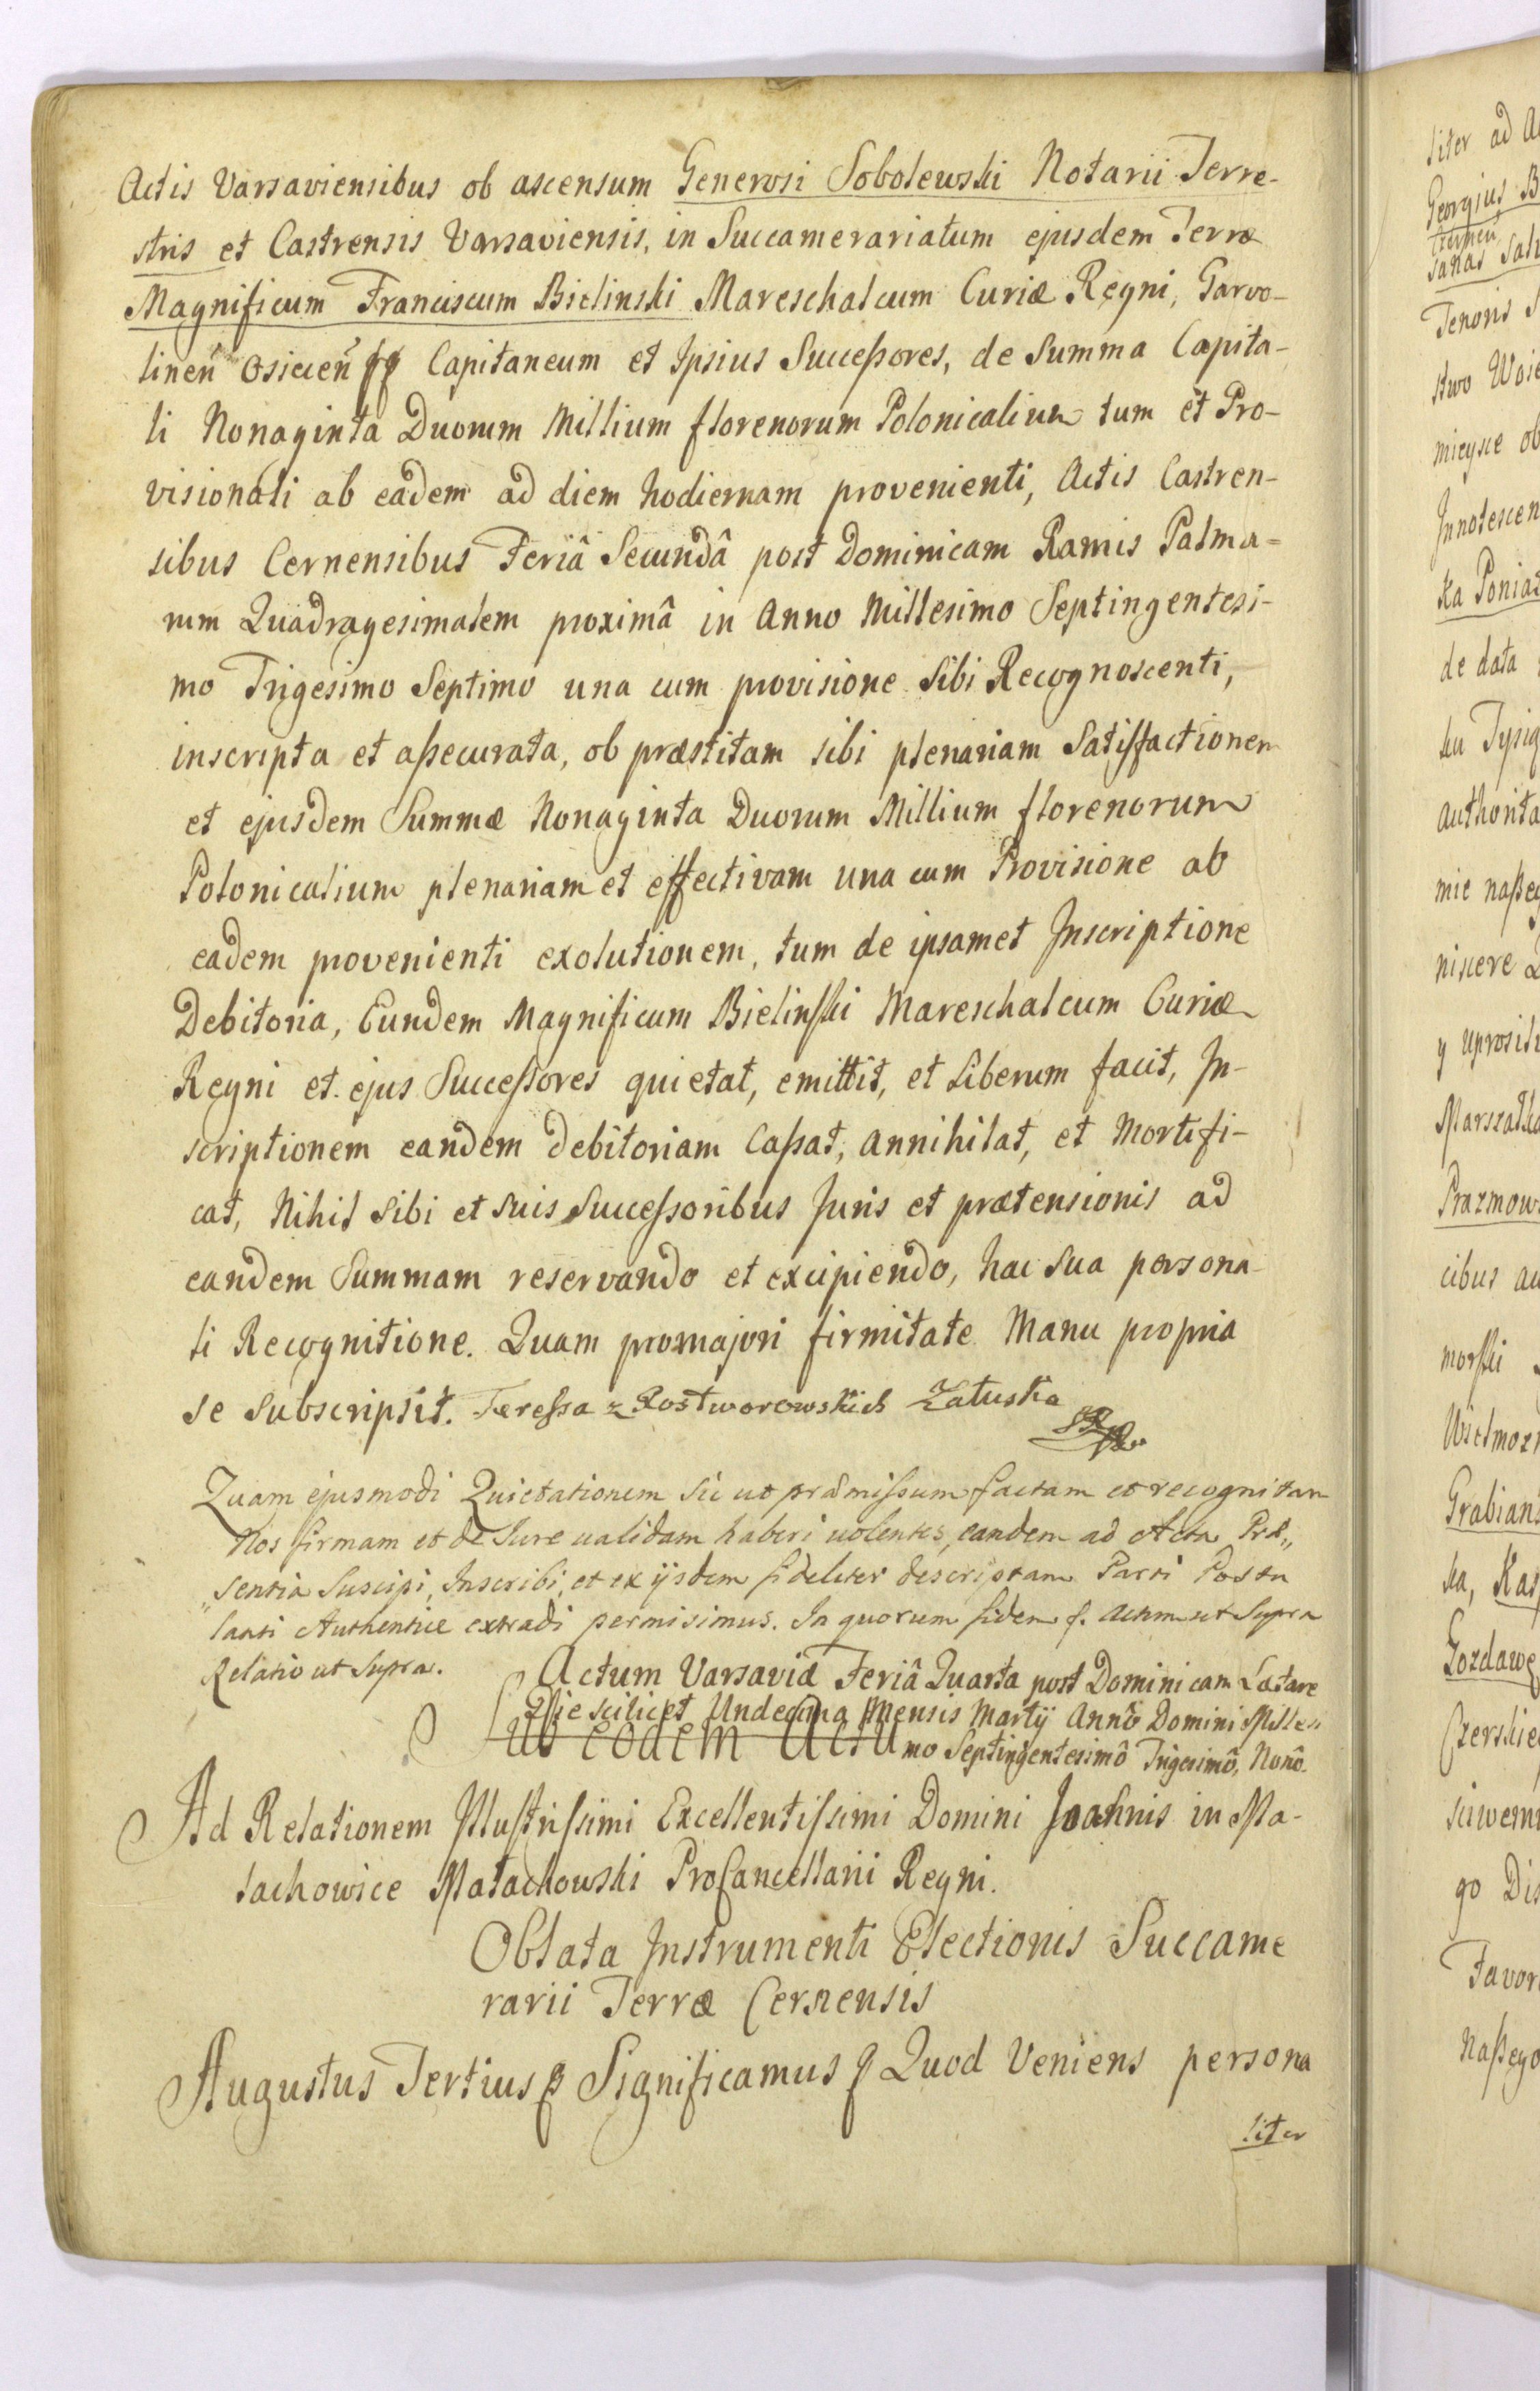 Actis Varsaviensibus ob ascensum Generosi Sobolewski Notarii Terre-
stris et Castrensis Varsaviensis, in Succamerariatum ejusdem Terræ
Magnificum Franciscum Bielinski Mareschalcum Curiæ Regni, Garvo-
linen Osiecen Capitaneum et Ipsius Successores, de Summa Capita-
li Nonaginta Duorum Millium florenorum Polonicalium tum et Pro-
visionali ab eadem ad diem hodiernam provenienti, Actis Castren-
sibus Cernensibus Feriâ Secundâ post Dominicam Ramis Palma=
rum Quadragesimalem proximâ in Anno Millesimo Septingentesi-
mo Trigesimo Septimo una cum provisione Sibi Recognoscenti,
inscripta et assecurata, ob præstitam sibi plenariam Satisfactionem
et ejusdem Summæ Nonaginta Duorum Millium florenorum
Polonicalium plenariam et effectivam una cum Provisione ab
eadem provenienti exolutionem, tum de ipsamet Inscriptione
Debitoria, Eundem Magnificum Bielinski Mareschalcum Curiæ
Regni et ejus Successores quietat, emittit, et Liberum facit, In-
scriptionem eandem debitoriam Cassat, annihilat, et Mortifi-
cat, Nihil Sibi et Suis Successoribus Juris et prætensionis ad
eandem Summam reservando et excipiendo, hac Sua persona-
li Recognitione. Quam pro majori firmitate Manu propria
se Subscripsit. Teressa z Rostworowskich Załuska
Quam ejusmodi Quietationem Sic ut præmissum factam et recognitam
Nos firmam et de Jure validam haberi volentes, eandem ad Acta Præ„
„sentia Suscipi, Inscribi, et ex ijsdem fideliter descriptam Parti Postu
lanti Authentice extradi permisimus. In quorum fidem f. Actum ut Supra
Relatio ut Supra.
Actum Varsaviæ Feriâ Quarta post Dominicam Lætare
Die scilicet Undecima Mensis Martij Annô Domini Millesi
Sub eodem Actu mo Septingentesimô Trigesimô, Nonô.
Ad Relationem Illustrissimi Excellentissimi Domini Joannis in Ma-
łachowice Małachowski ProCancellarii Regni.
Oblata Instrumenti Electionis Succame
rarii Terræ Cernensis
Augustus Tertius Significamus Quod Veniens persona
liter
liter ad
Georgius B
Tenoris
stwo
mieysce ob
Innotescen
ka Poniat
de data
authorita
y uprosi
Marszałk
Prazmow
cibus
morski
Grabian
ka, Kas
Gozdawę
Czerskie
go Dis
Favor